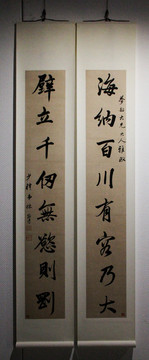 海納百川有容乃大
壁立千仞無慾則剛